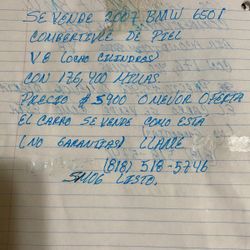 SE VENDE 2007 BMW 650i
COMBERTIBLE DE PIEL
V8 (OCHO CILINDROS)
CON 176,400 MILLAS
PRECIO $ 5900 O MENOR OFERTA
EL CARRO SE VENDE COMO ESTA
(NO GARANTIAS) LLAME
(818) 518-5746
SMOG LISTO.